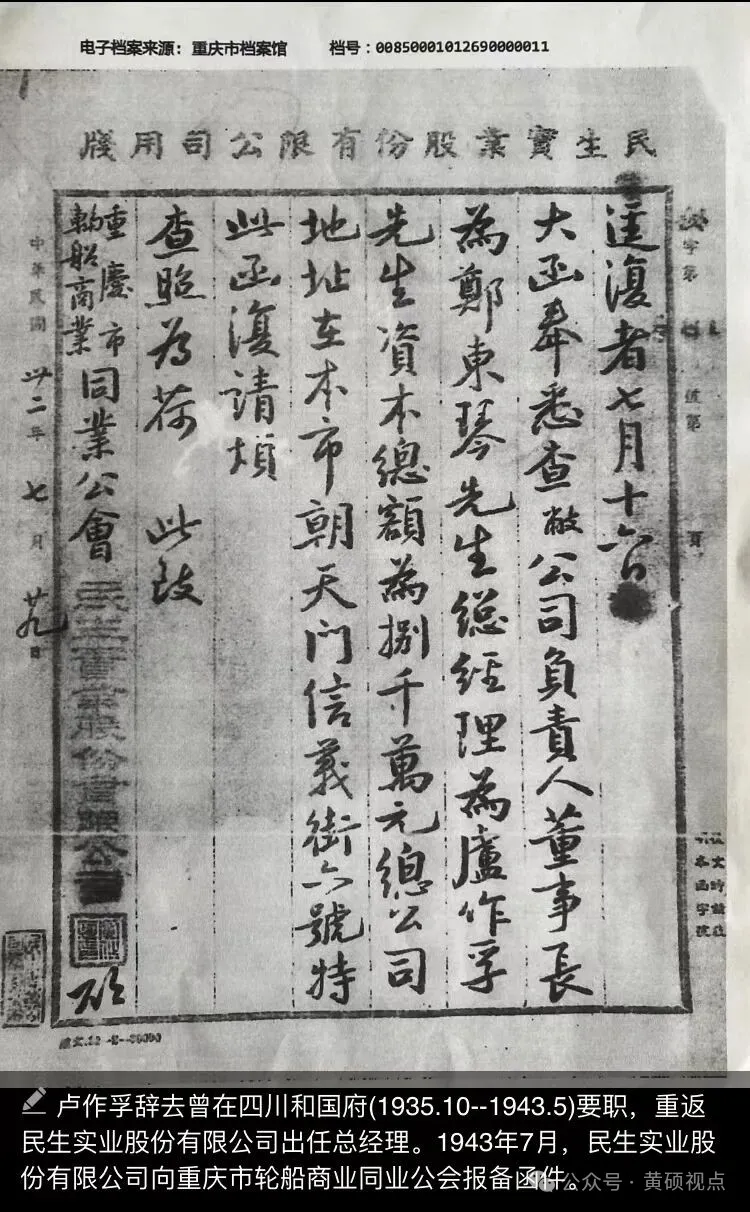 电子档案来源：重庆市档案馆 档号：00850001012690000011
民生實業股份有限公司用牋
逕復者七月十六日
大函奉悉查敝公司負責人董事長
為鄭東琴先生總經理為盧作孚
先生資本總額為捌千萬元總公司
地址在本市朝天门信義街六號特
此函復請煩
查照為荷 此致
重慶市
輪船商業
同業公會
民生實業股份有限公司
啟
中華民國卅二年七月廿九日
卢作孚辞去曾在四川和国府(1935.10--1943.5)要职，重返
民生实业股份有限公司出任总经理。1943年7月，民生实业股
份有限公司向重庆市轮船商业同业公会报备函件。
公众号·黄硕视点